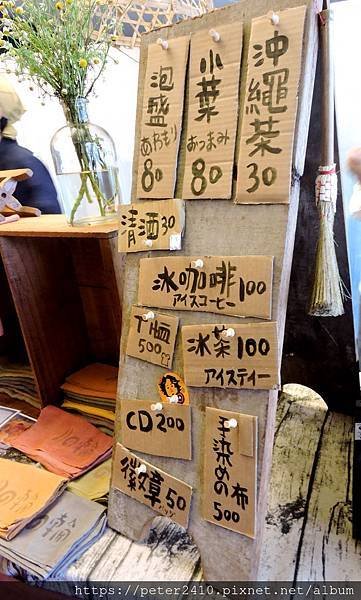 泡盛
あわもり
80
小葉
おつまみ
80
沖縄茶
30
清酒30
冰咖啡100
アイスコーヒー
T恤
500
冰茶100
アイスティー
CD200
手染めの布
500
徽章50
バッヂ
https://peter2410.pixnet.net/album